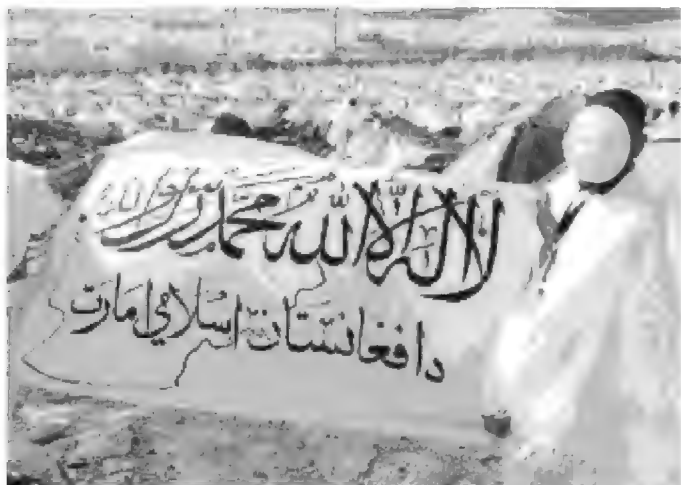 لا اله الا الله محمد رسول الله
د افغانستان اسلامي امارت